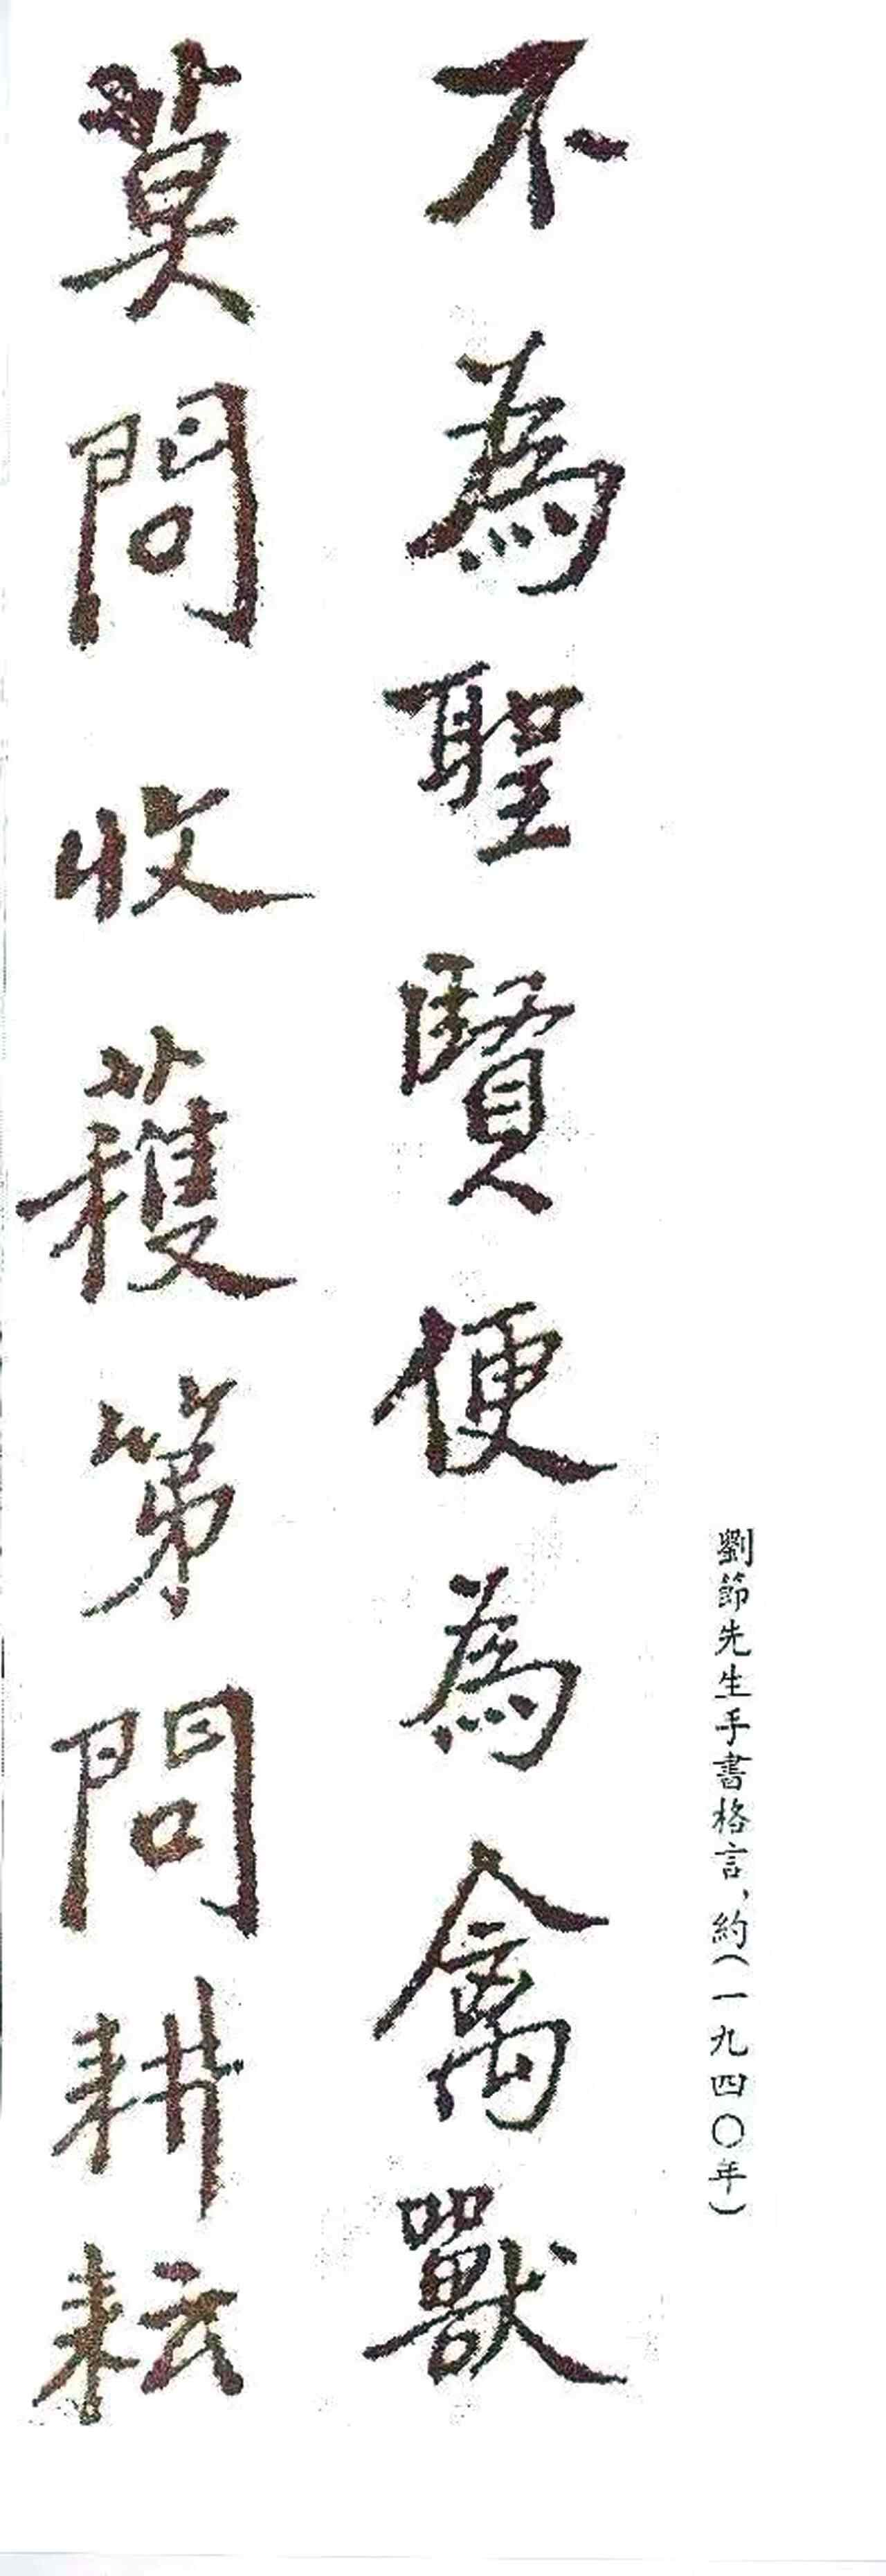 劉節先生手書格言，約（一九四〇年）
不為聖賢便為禽獸
莫問收穫第問耕耘